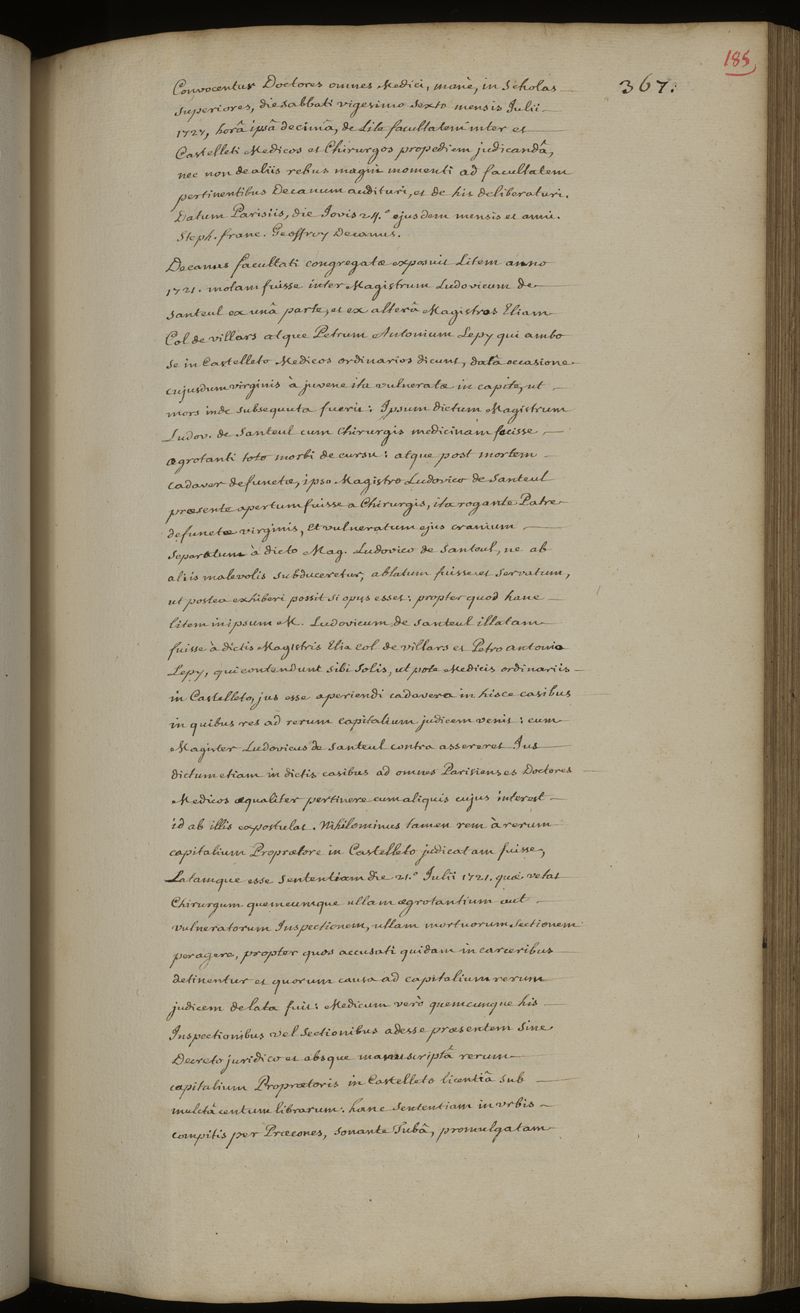 185
367.
Convocentur Doctores omnes Medici, manè, in Scholas
superiores, die sabbati vigesimo sexto mensis Julii
1727, horâ ipsâ decimâ, de Lite facultatem inter et
Castelleti Medicos et Chirurgos propediem judicandâ,
nec non de aliis rebus magni momenti ad facultatem
pertinentibus Decanum audituri, et de his deliberaturi.
Datum Parisiis, die Jovis 24.° ejusdem mensis et anni.
Steph. franc. Geoffroy Decanus.
Decanus facultati congregatæ exposuit Litem anno
1721. motam fuisse inter Magistrum Ludovicum de
Santeul ex unâ parte, et ex alterâ Magistros Eliam
Col de villars atque Petrum Antonium Lepy qui ambo
se in Castelleto Medicos ordinarios dicunt, datâ occasione
cujusdam virginis à juvene ita vulneratæ in capite, ut
mors inde subsequuta fuerit: Ipsum dictum Magistrum
Ludov. de Santeul cum Chirurgis medicinam fecisse
ægrotanti toto morbi de cursu: atque post mortem
cadaver defunctæ, ipso Magistro Ludovico de Santeul
præsente apertum fuisse a Chirurgis, ita rogante Patre
defunctæ virginis, et vulneratum ejus cranium
separatum à dicto Mag. Ludovico de Santeul, ne ab
aliis malevolis subduceretur, ablatum fuisse et servatum,
ut postea exhiberi possit si opus esset: propter quod hanc
litem in ipsum M. Ludovicum de Santeul illatam
fuisse à dictis Magistris Elia Col de villars et Petro antonio
Lepy, qui contendunt sibi solis, ut pote Medicis ordinariis
in Castelleto, jus esse aperiendi cadavera in hisce casibus
in quibus res ad rerum capitalium judicem venit: cum
Magister Ludovicus de Santeul contra assereret Jus
dictum etiam in dictis casibus ad omnes Parisienses Doctores
Medicos æqualiter pertinere cum aliquis cujus interest
id ab illis expostulat. Nihilominus tamen rem à rerum
capitalium Proprætore in Castelleto judicatam fuisse,
Latamque esse sententiam die 21.° Julii 1721. quæ vetat
Chirurgum quemcumque ullam ægrotantium aut
vulneratorum Inspectionem, ullam mortuorum sectionem
peragere, propter quos accusati quidam in carceribus
detinentur et quorum causa ad capitalium rerum
judicem delata fuit: Medicum verò quemcunque his
Inspectionibus vel Sectionibus adesse præsentem sine
Decreto juridico et absque manuscriptâ rerum
capitalium Proprætoris in Castelleto licentiâ sub
mulctâ centum librarum. hanc sententiam in vrbis
compitis per Præcones, sonante Tubâ, promulgatam